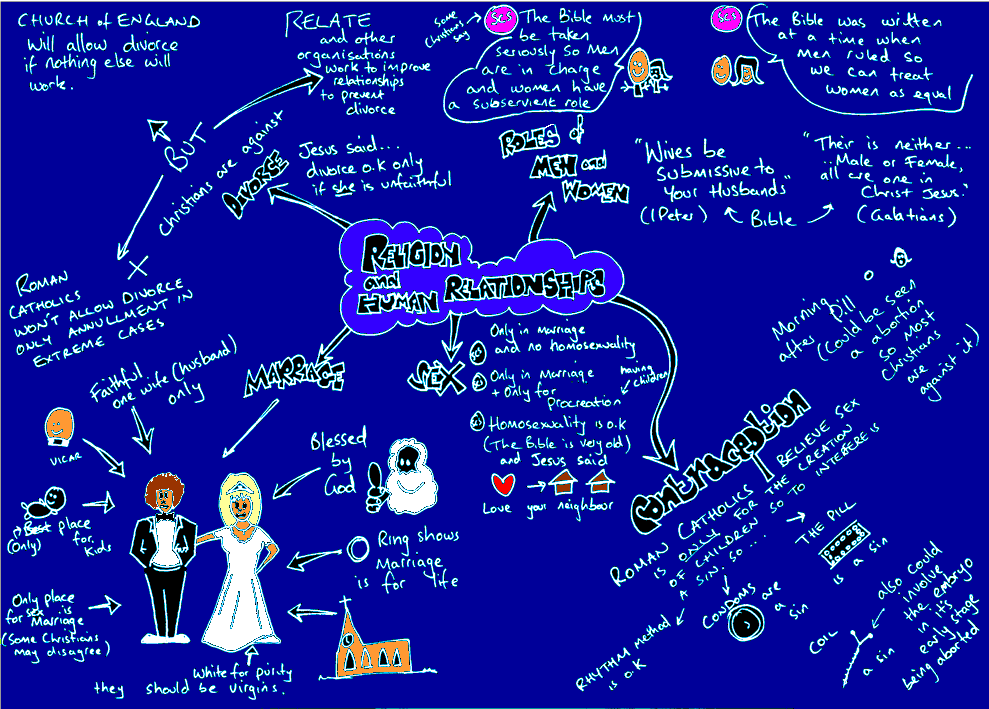 CHURCH of ENGLAND
will allow divorce
if nothing else will
work.
RELATE
and other
organisations
work to improve
relationships
to prevent
divorce
BUT
Christians are against
DIVORCE
Jesus said...
divorce o.k only
if she is unfaithful
ROMAN
CATHOLICS
WON'T ALLOW DIVORCE
ONLY ANNULLMENT IN
EXTREME CASES
Some
Christians
say
SCS
The Bible must
be taken
seriously so men
are in charge
and women have
a subservient role
SCS
The Bible was written
at a time when
men ruled so
we can treat
women as equal
ROLES of
MEN and
WOMEN
"Wives be
Submissive to
Your Husbands"
(1 Peter)
Bible
"Their is neither...
...Male or Female,
all are one in
Christ Jesus."
(Galatians)
RELIGION
and
HUMAN RELATIONSHIPS
MARRAGE
Faithful
one wife (husband)
only
VICAR
Best place
(only) for
Kids
Only place
for sex is
Marriage
(Some Christians
may disagree)
Blessed
by
God
Ring shows
Marriage
is for life
White for purity
they should be virgins.
SEX
Only in marriage
and no homosexuality
Only in Marriage
+ Only for
Procreation
having
children
Homosexuality is o.k
(The Bible is very old)
and Jesus said
Love your neighbour
Contraception
ROMAN CATHOLICS BELIEVE SEX
IS ONLY FOR THE CREATION
OF CHILDREN SO TO INTEFERE IS
A SIN. SO...
RHYTHM METHOD
is O.K
CONDOMS are
a
sin
THE PILL
is a sin
COIL
a sin
also could
involve
the embryo
in its
early stage
being aborted
Morning
after Pill
(Could be seen
a a abortion
so most
Christians
are
against it)